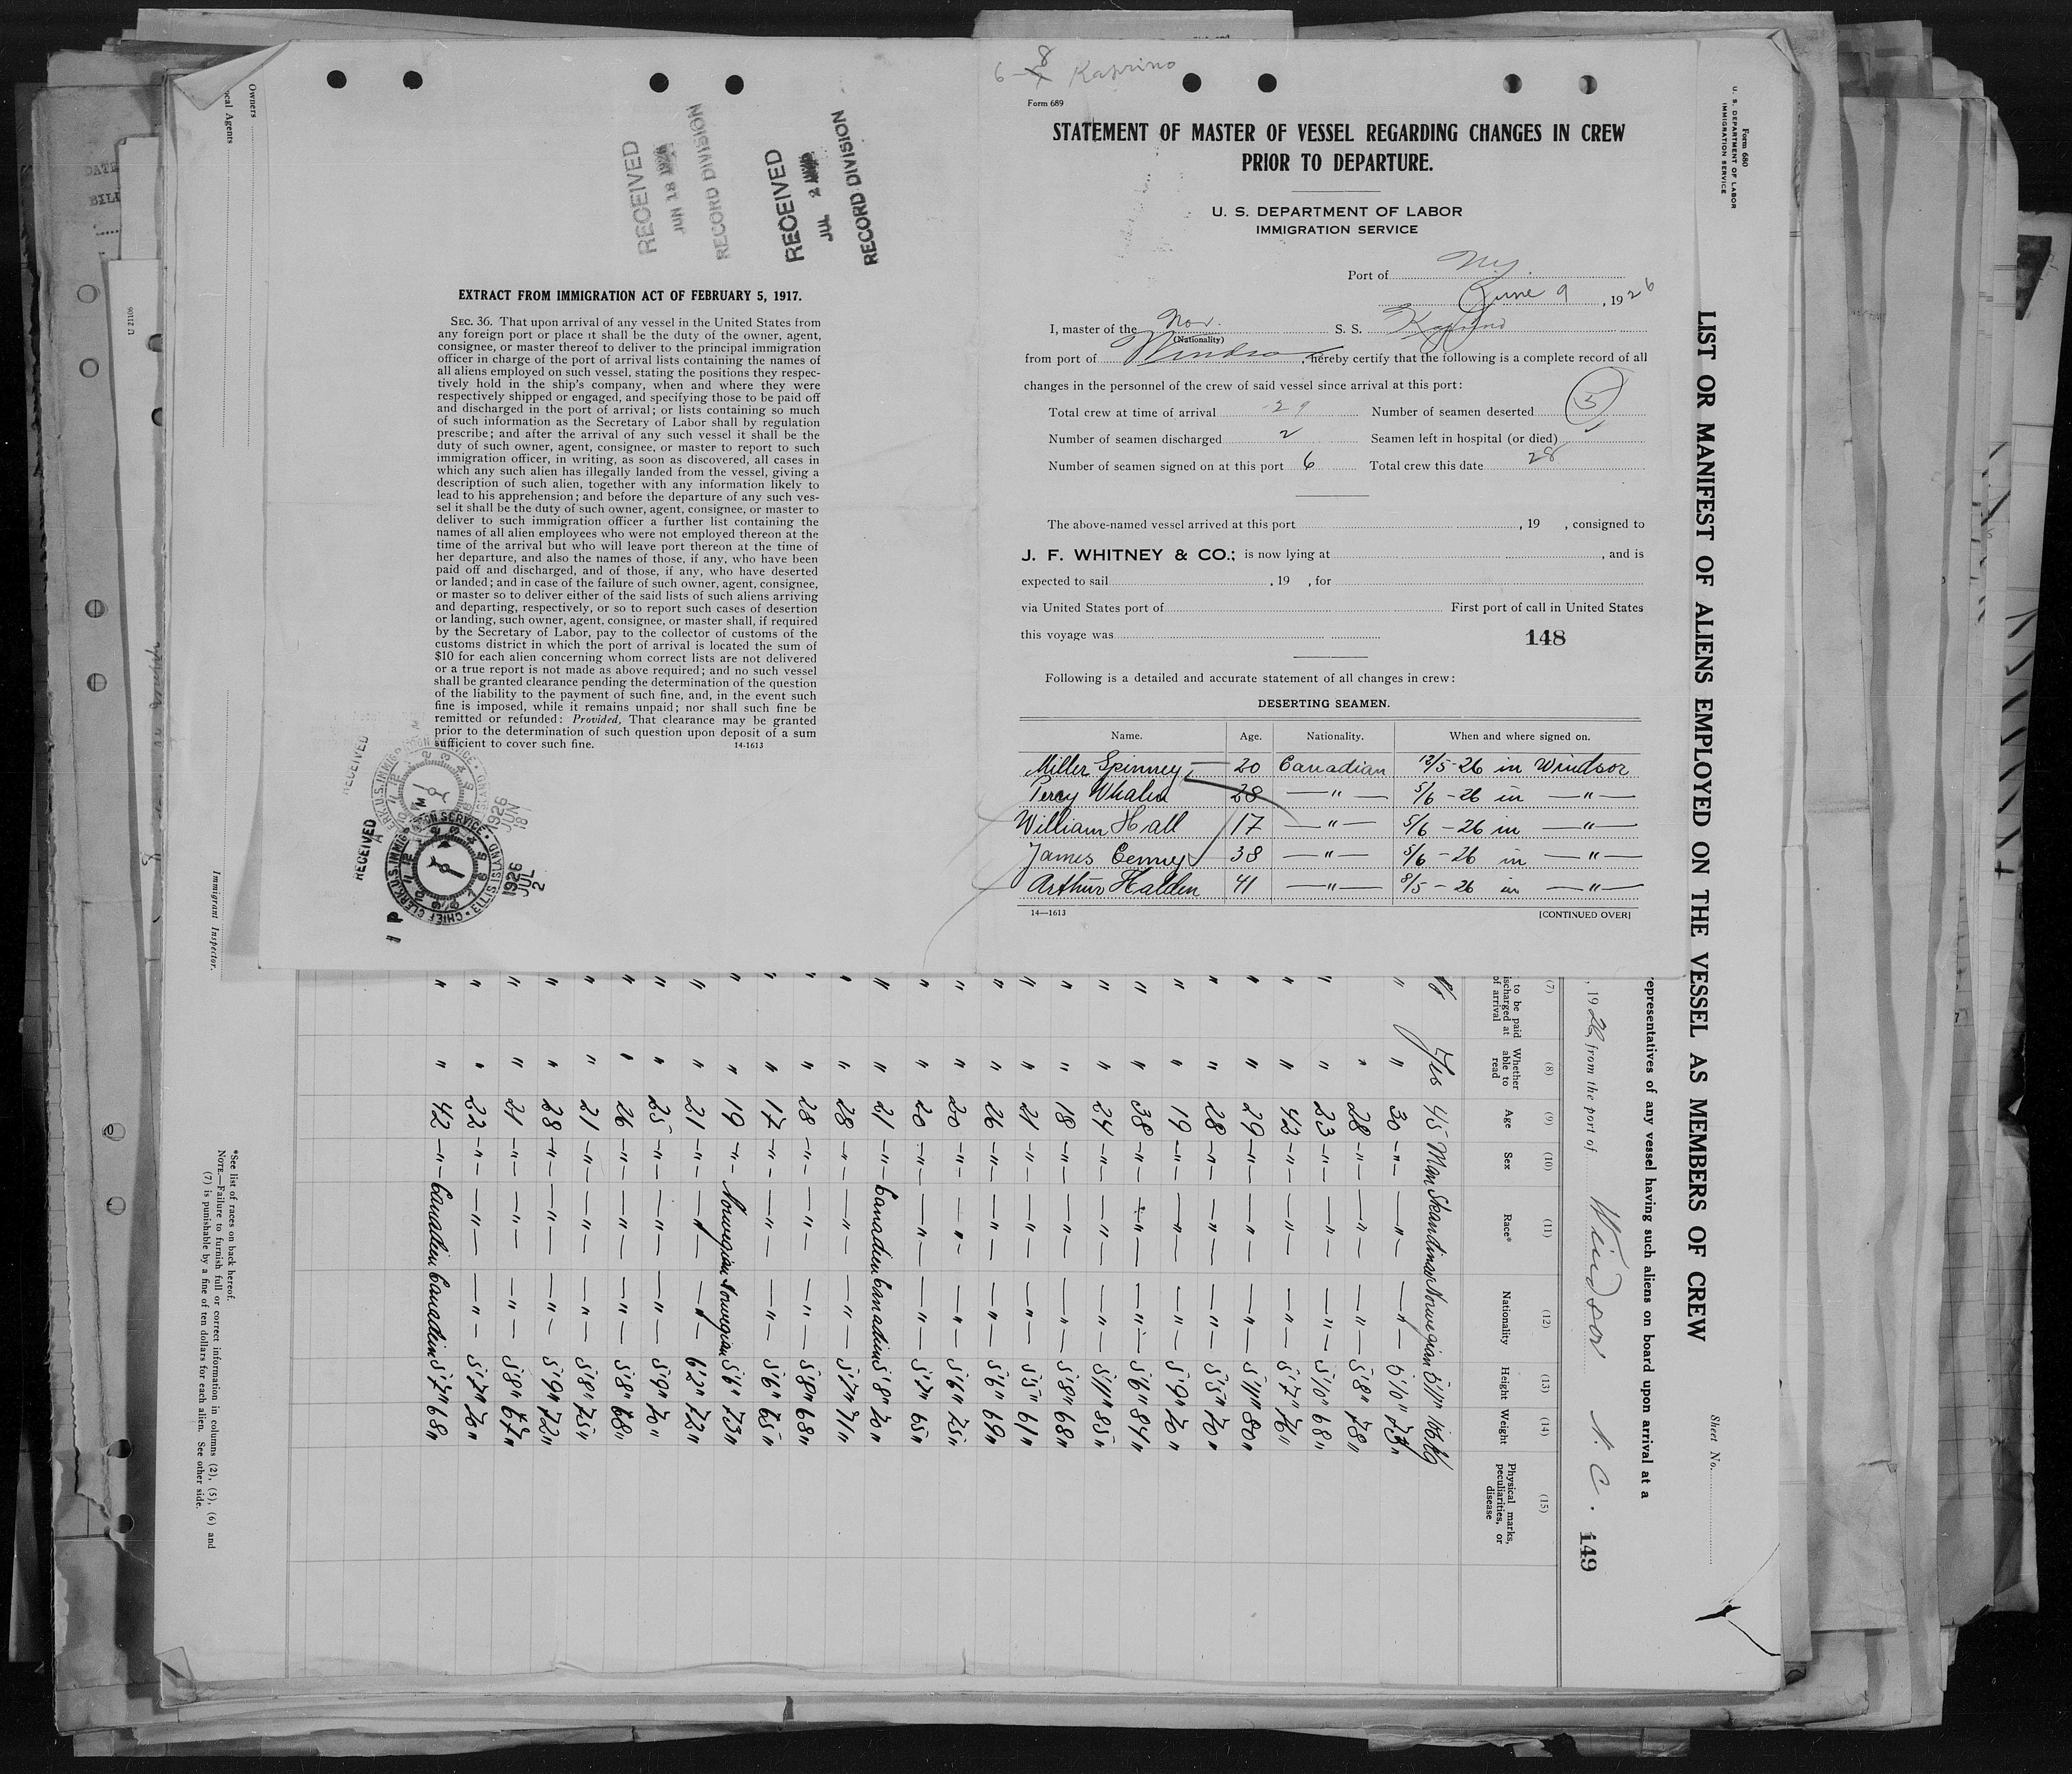 6 - 8 Kaprino
Form 689
STATEMENT OF MASTER OF VESSEL REGARDING CHANGES IN CREW
PRIOR TO DEPARTURE.
U. S. DEPARTMENT OF LABOR
IMMIGRATION SERVICE
Port of N.Y.
June 9, 1926
I, master of the Nor. S. S. Kaprino
(Nationality)
from port of Windsor, hereby certify that the following is a complete record of all
changes in the personnel of the crew of said vessel since arrival at this port:
Total crew at time of arrival 29 Number of seamen deserted 5
Number of seamen discharged 2 Seamen left in hospital (or died)
Number of seamen signed on at this port 6 Total crew this date 28
The above-named vessel arrived at this port , 19 , consigned to
J. F. WHITNEY & CO.; is now lying at , and is
expected to sail , 19 , for
via United States port of First port of call in United States
this voyage was
148
Following is a detailed and accurate statement of all changes in crew:
DESERTING SEAMEN.
Name. Age. Nationality. When and where signed on.
Miller Spinney 20 Canadian 12/5-26 in Windsor
Percy Whalen 28 — " — 5/6 - 26 in — " —
William Hall 17 — " — 5/6 - 26 in — " —
James Cenney 38 — " — 5/6 - 26 in — " —
Arthur Halden 41 — " — 8/5 - 26 in — " —
14—1613 [CONTINUED OVER]
RECEIVED
JUN 18
RECORD DIVISION
RECEIVED
JUL 2
RECORD DIVISION
EXTRACT FROM IMMIGRATION ACT OF FEBRUARY 5, 1917.
SEC. 36. That upon arrival of any vessel in the United States from
any foreign port or place it shall be the duty of the owner, agent,
consignee, or master thereof to deliver to the principal immigration
officer in charge of the port of arrival lists containing the names of
all aliens employed on such vessel, stating the positions they respec-
tively hold in the ship's company, when and where they were
respectively shipped or engaged, and specifying those to be paid off
and discharged in the port of arrival; or lists containing so much
of such information as the Secretary of Labor shall by regulation
prescribe; and after the arrival of any such vessel it shall be the
duty of such owner, agent, consignee, or master to report to such
immigration officer, in writing, as soon as discovered, all cases in
which any such alien has illegally landed from the vessel, giving a
description of such alien, together with any information likely to
lead to his apprehension; and before the departure of any such ves-
sel it shall be the duty of such owner, agent, consignee, or master to
deliver to such immigration officer a further list containing the
names of all alien employees who were not employed thereon at the
time of the arrival but who will leave port thereon at the time of
her departure, and also the names of those, if any, who have been
paid off and discharged, and of those, if any, who have deserted
or landed; and in case of the failure of such owner, agent, consignee,
or master so to deliver either of the said lists of such aliens arriving
and departing, respectively, or so to report such cases of desertion
or landing, such owner, agent, consignee, or master shall, if required
by the Secretary of Labor, pay to the collector of customs of the
customs district in which the port of arrival is located the sum of
$10 for each alien concerning whom correct lists are not delivered
or a true report is not made as above required; and no such vessel
shall be granted clearance pending the determination of the question
of the liability to the payment of such fine, and, in the event such
fine is imposed, while it remains unpaid; nor shall such fine be
remitted or refunded: Provided, That clearance may be granted
prior to the determination of such question upon deposit of a sum
sufficient to cover such fine. 14-1613
RECEIVED
1926
JUN
18
RECEIVED
CHIEF CLERK U.S. IMMIGRATION SERVICE • ELLIS ISLAND
1926
JUL
2
1 P
Form 680
U. S. DEPARTMENT OF LABOR
IMMIGRATION SERVICE
LIST OR MANIFEST OF ALIENS EMPLOYED ON THE VESSEL AS MEMBERS OF CREW
Sheet No.
representatives of any vessel having such aliens on board upon arrival at a
, 1926 from the port of Windsor N. C.
149
(7) (8) (9) (10) (11) (12) (13) (14) (15)
to be paid
discharged at
of arrival
Whether
able to
read
Age Sex Race* Nationality Height Weight
Physical marks,
peculiarities, or
disease
Yes 45 Man Skandinav Norwegian 5'11"
" " 30 - " - — " — — " — 5'10"
" 28 - " - — " — — " — 5'8" 78 "
" " 23 - " - — " — — " — 5'10" 68 "
" " 42 - " - — " — — " — 5'7" 76 "
" " 29 - " - — " — — " — 5'11" 80 "
" " 28 - " - — " — — " — 5'5" 70 "
" " 19 - " - — " — — " — 5'9" 70 "
" " 38 - " - — " — — " — 5'6" 84 "
" " 24 - " - — " — — " — 5'11" 85 "
" " 18 - " - — " — — " — 5'8" 68 "
" " 21 - " - — " — — " — 5'5" 61 "
" " 26 - " - — " — — " — 5'6" 69 "
" " 20 - " - — " — — " — 5'6" 75 "
" " 20 - " - — " — — " — 5'7" 65 "
" " 21 - " - Canadien Canadien 5'8" 70 "
" " 28 - " - — " — — " — 5'7" 71 "
" " 28 - " - — " — — " — 5'8" 68 "
" " 17 - " - — " — — " — 5'6" 65 "
" " 19 - " - Norwegian Norwegian 5'6" 73 "
" " 21 - " - — " — — " — 6'2" 72 "
" " 25 - " - — " — — " — 5'9" 70 "
" " 26 - " - — " — — " — 5'8" 68 "
" " 21 - " - — " — — " — 5'8" 75 "
" " 28 - " - — " — — " — 5'9" 72 "
" " 21 - " - — " — — " — 5'8" 67 "
" " 22 - " - — " — — " — 5'7" 70 "
" " 42 - " - Canadien Canadien 5'7" 68 "
*See list of races on back hereof.
NOTE.—Failure to furnish full or correct information in columns (2), (5), (6) and
(7) is punishable by a fine of ten dollars for each alien. See other side.
Immigrant Inspector.
Owners
ocal Agents